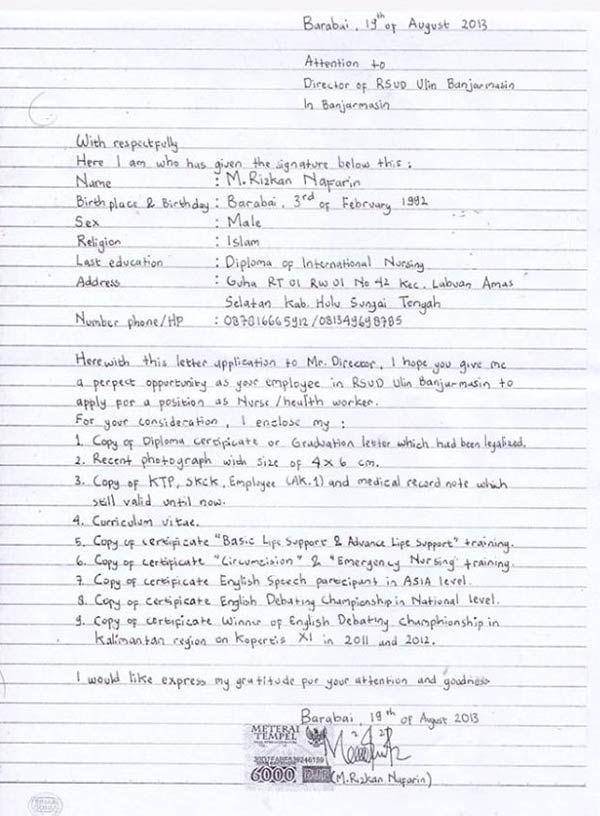 Barabai, 19th of August 2013
Attention to
Director of RSUD Ulin Banjarmasin
In Banjarmasin
With respectfully
Here I am who has given the signature below this :
Name : M. Rizkan Naparin
Birthplace & Birthday : Barabai, 3rd of February 1992
Sex : Male
Religion : Islam
Last education : Diploma of International Nursing
Address : Guha RT 01 RW 01 No 42 Kec. Labuan Amas
Selatan Kab. Hulu Sungai Tengah
Number phone/HP : 087816665912 /081349698785
Herewith this letter application to Mr. Director, I hope you give me
a perpect opportunity as your employee in RSUD Ulin Banjarmasin to
apply for a position as Nurse/health worker.
For your consideration, I enclose my :
1. Copy of Diploma certificate or Graduation letter which had been legalized.
2. Recent photograph with size of 4x6 cm.
3. Copy of KTP, SKCK, Employee (AK.1) and medical record note which
still valid until now.
4. Curriculum vitae.
5. Copy of certipicate "Basic Lipe Support & Advance Lipe Support" training.
6. Copy of certipicate "Circumcision" & "Emergency Nursing" training.
7. Copy of certipicate English Speech participant in ASIA level.
8. Copy of certipicate English Debating Championship in National level.
9. Copy of certipicate Winner of English Debating Champhionship in
Kalimantan region on Kopertis XI in 2011 and 2012.
I would like express my gratitude por your attention and goodness
Barabai, 19th of August 2013
METERAI
TEMPEL
6000
(M. Rizkan Naparin)